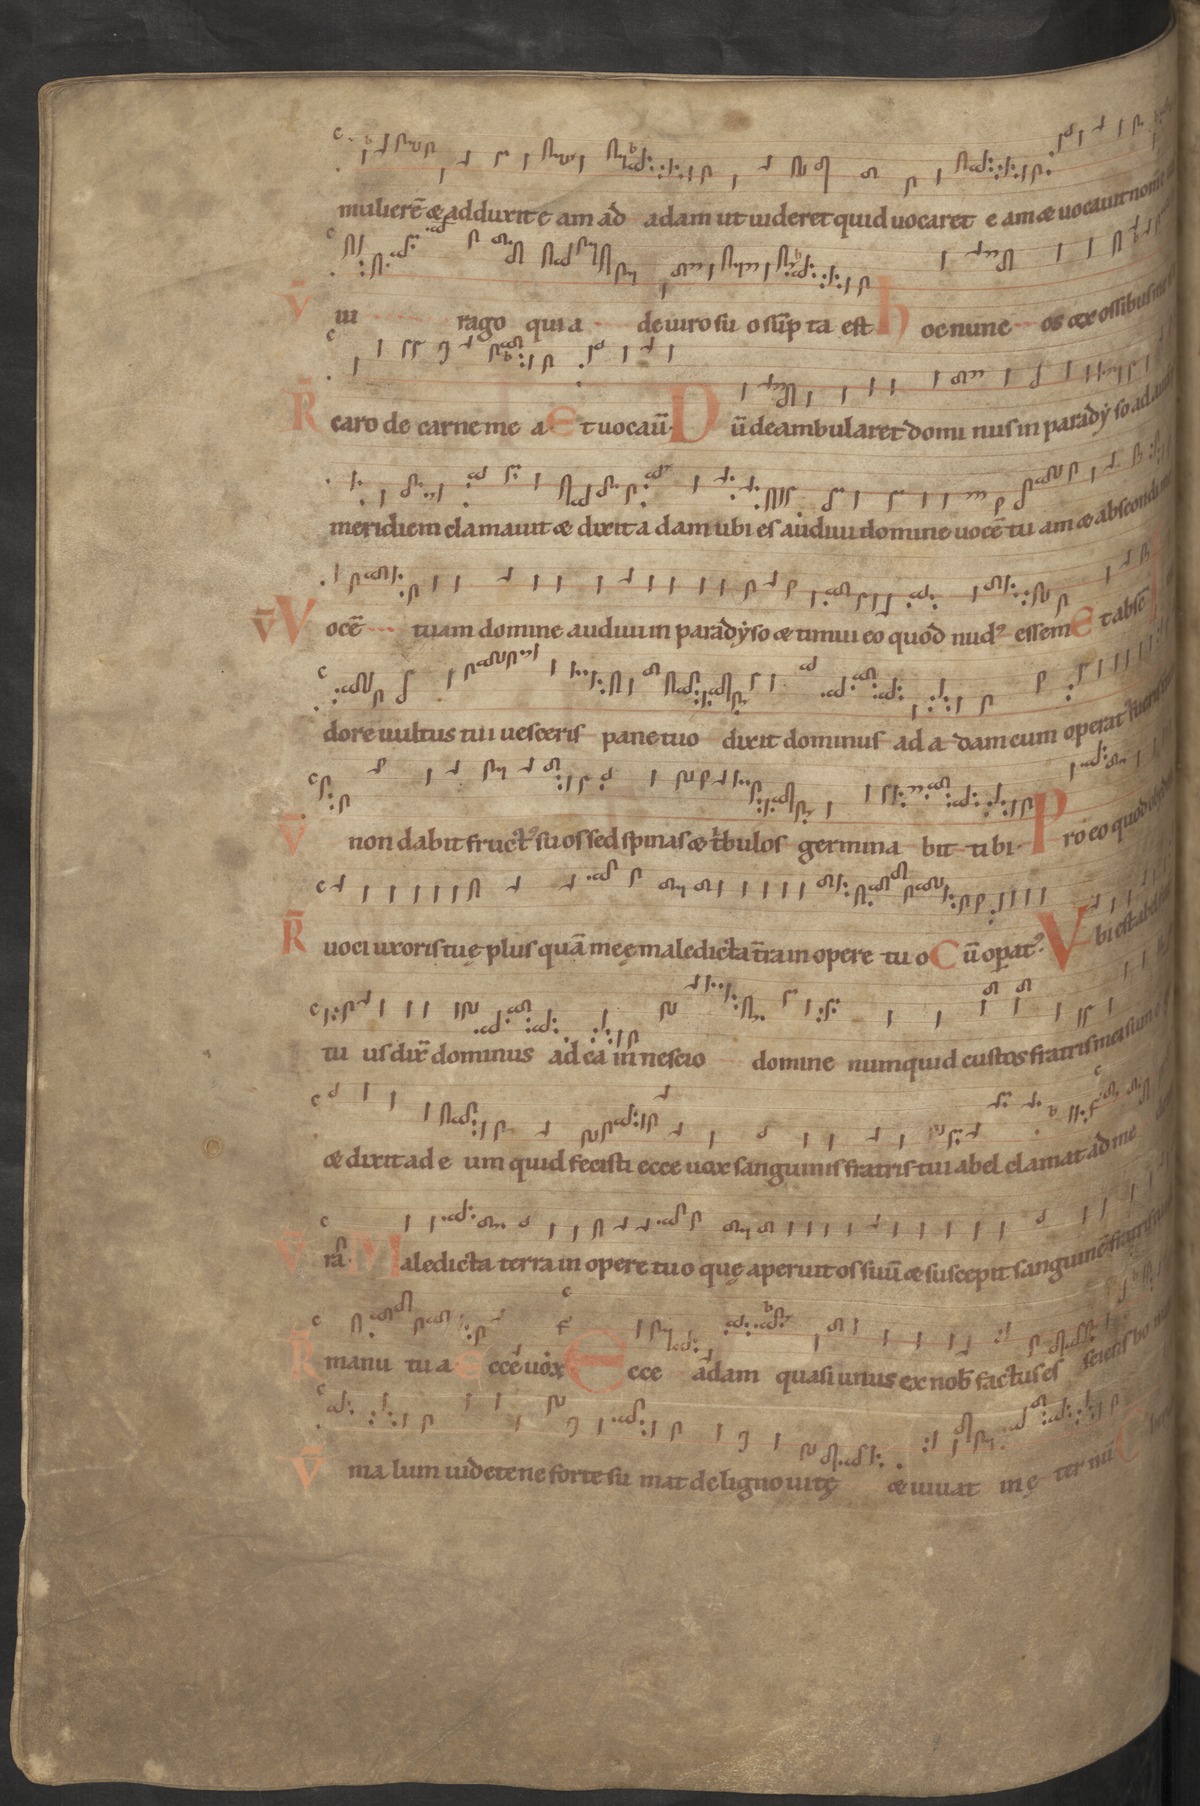 mulierē & adduxit e am ad adam ut uideret quid uocaret e am & uocauit nom̄
v̄ ui rago quia de uiro su o sūp ta est hoc nunc os ex ossibus me
R̄ caro de carne me a Et uocaū. Dū deambularet domi nus in paradẏ so ad
meridiem clamauit & dixit a dam ubi es audiui domine uocē tu am & abscondi
v̄ Vocē tuam domine audiui in paradẏso & timui eo quod nud⁹ essem Et absc̄
dore uultus tui uesceris pane tuo dixit dominus ad a dam cum operat⁹ fueris
v̄ non dabit fruct⁹ suos sed spinas & t̄bulos germina bit tibi Pro eo quod
R̄ uoci uxoris tuę plus quā meę maledicta t̄ra in opere tu o Cū opat⁹. Vbi est abel
tu us dix̄ dominus ad ca in nescio domine numquid custos fratris mei sum
& dixit ad e um quid fecisti ecce uox sanguinis fratris tui abel clamat ad me
v̄ rā. Maledicta terra in opere tuo quę aperuit os suū & suscepit sanguinē fratris
R̄ manu tu a Ecce uox Ecce adam quasi unus ex nob̄ factus es sciens bo
v̄ ma lum uidete ne forte su mat de ligno uitę & uiuat in ę ter nū C